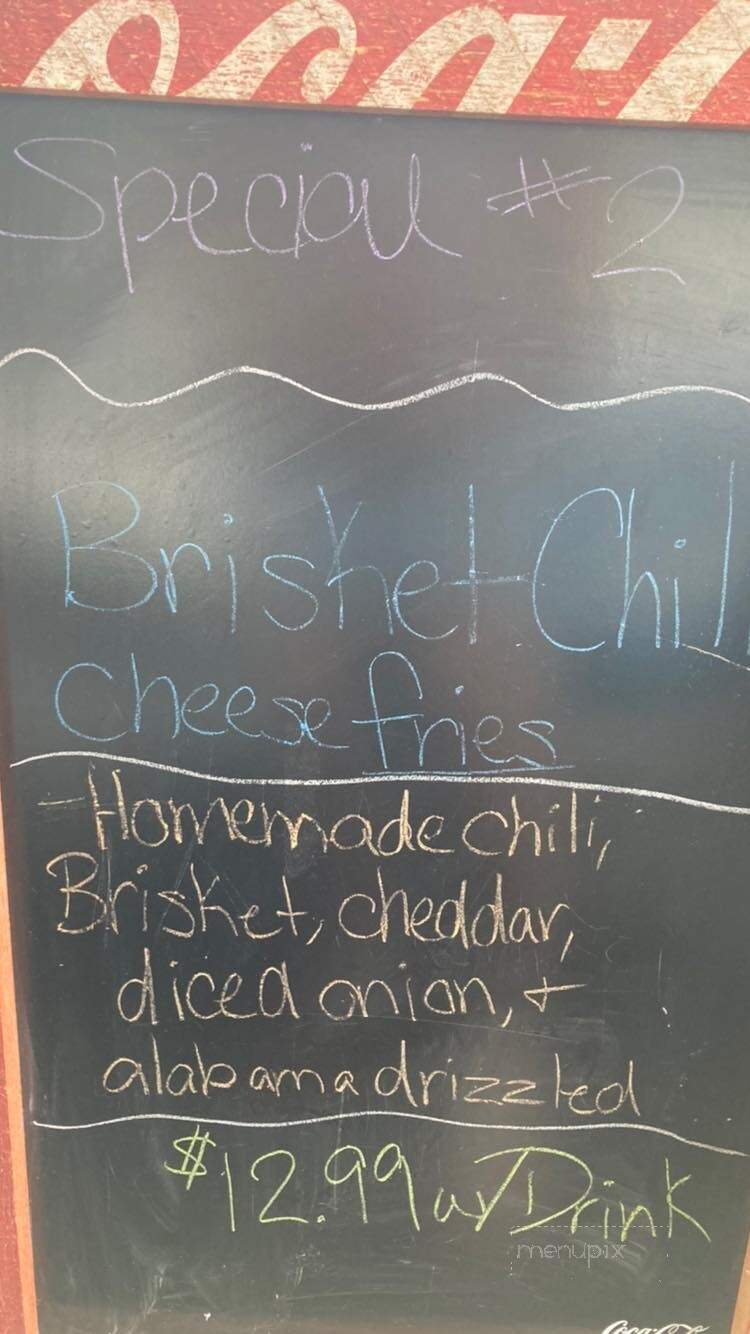 Coca-C
Special #2
Brisket Chili
cheese fries
-Homemade chili,
Brisket, cheddar,
diced onion, +
alabama drizzled
$12.99 w/ Drink
menupix
Coca-Co